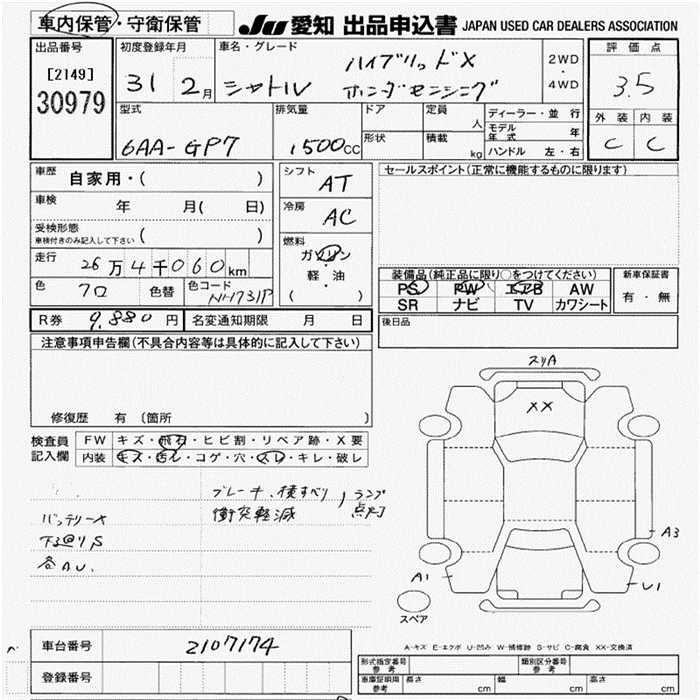 車内保管・守衛保管 JU 愛知 出品申込書 JAPAN USED CAR DEALERS ASSOCIATION
出品番号
[2149]
30979
初度登録年月
31 2月
車名・グレード
シャトル
ハイブリッドX
ホンダセンシング
2WD
・
4WD
評価点
3.5
外装 内装
C C
型式
6AA-GP7
排気量
1500cc
ドア
形状
定員
人
積載
kg
ディーラー・並行
モデル年式 年
ハンドル 左・右
車歴
自家用・( )
車検
年 月( 日)
受検形態
車検付きのみ記入して下さい ( )
走行 26万4千060km
色 クロ 色替 色コード NH731P
シフト
AT
冷房
AC
燃料
ガソリン
・
軽・油
( )
セールスポイント(正常に機能するものに限ります)
装備品(純正品に限り○をつけてください)
PS PW エアB AW
SR ナビ TV カワシート
新車保証書
有・無
R券 9,880円 名変通知期限 月 日
後日品
注意事項申告欄(不具合内容等は具体的に記入して下さい)
修復歴 有 〔箇所 〕
検査員
記入欄
FW キズ・飛石・ヒビ割・リペア跡・X要
内装 キズ・汚レ・コゲ・穴・スレ・キレ・破レ
ブレーキ、横すべり,ランプ
衝突軽減 点灯
バッテリー×
下廻りS
各AU.
スリA
XX
A3
A1
U1
スペア
A-キズ E-エクボ U-凹み W-補修跡 S-サビ C-腐食 XX-交換済
車台番号 2107174
登録番号
形式指定番号
参考
類別区分番号
参考
車庫証明用
参考
長さ cm 幅 cm 高さ cm